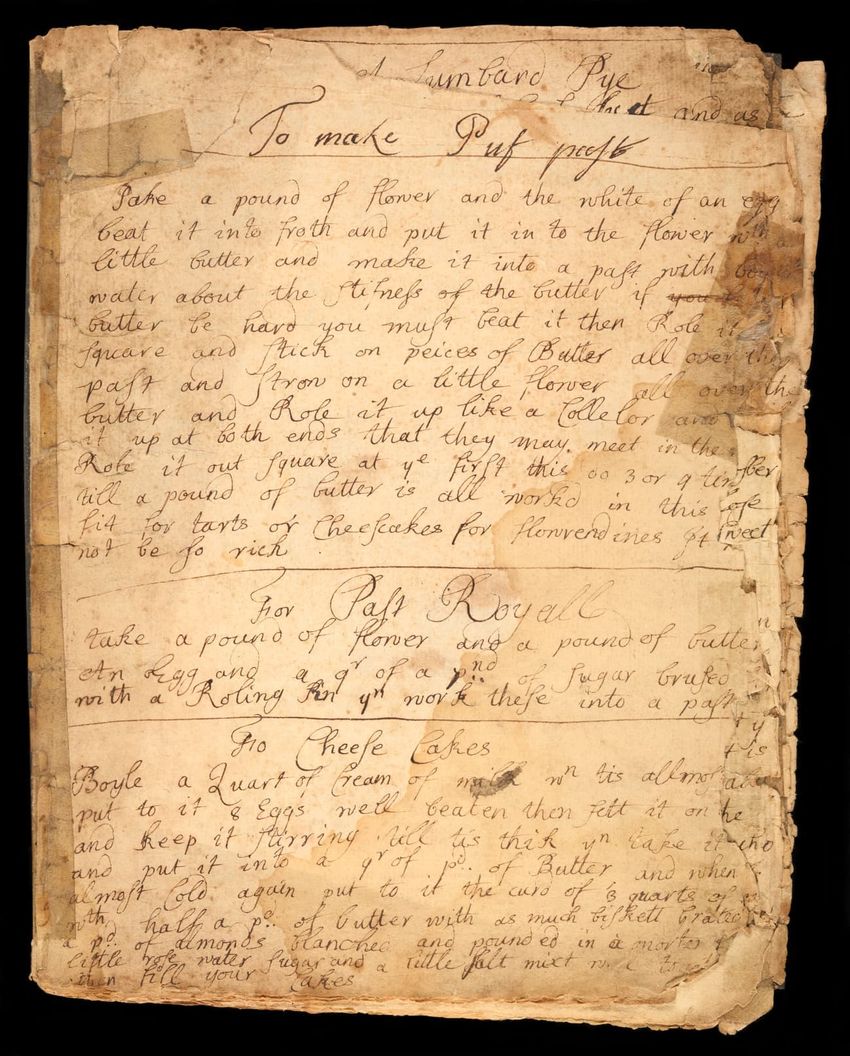 A Lumbard Pye
and as
To make Puf past
Take a pound of flower and the white of an egg
beat it into froth and put it in to the flower with a
little butter and make it into a past with
water about the stifness of the butter if
butter be hard you must beat it then Role it
square and stick on peices of Butter all over the
past and strow on a little flower all over the
butter and Role it up like a Collelor and
it up at both ends that they may meet in the
Role it out square at ye first this oo 3 or 4
till a pound of butter is all workd in this
fit for tarts or Cheesecakes for flowrendines
not be so rich
For Past Royall
take a pound of flower and a pound of butter
An Egg and a qr of a pnd of sugar brused
with a Roling Pin yn work these into a past
Fo Cheese Cakes
Boyle a Quart of Cream of milk wn tis allmost
put to it 8 Eggs well beaten then sett it on
and keep it stirring till tis thik yn take it
and put it into a qr of pd. of Butter and when
almost Cold again put to it the curd of 8 quarts of
with half a pd. of butter with as much biskett grated
a pd. of almonds blanched and pounded in a morter
little rose water sugar and a little salt mixt
then fill your Cakes